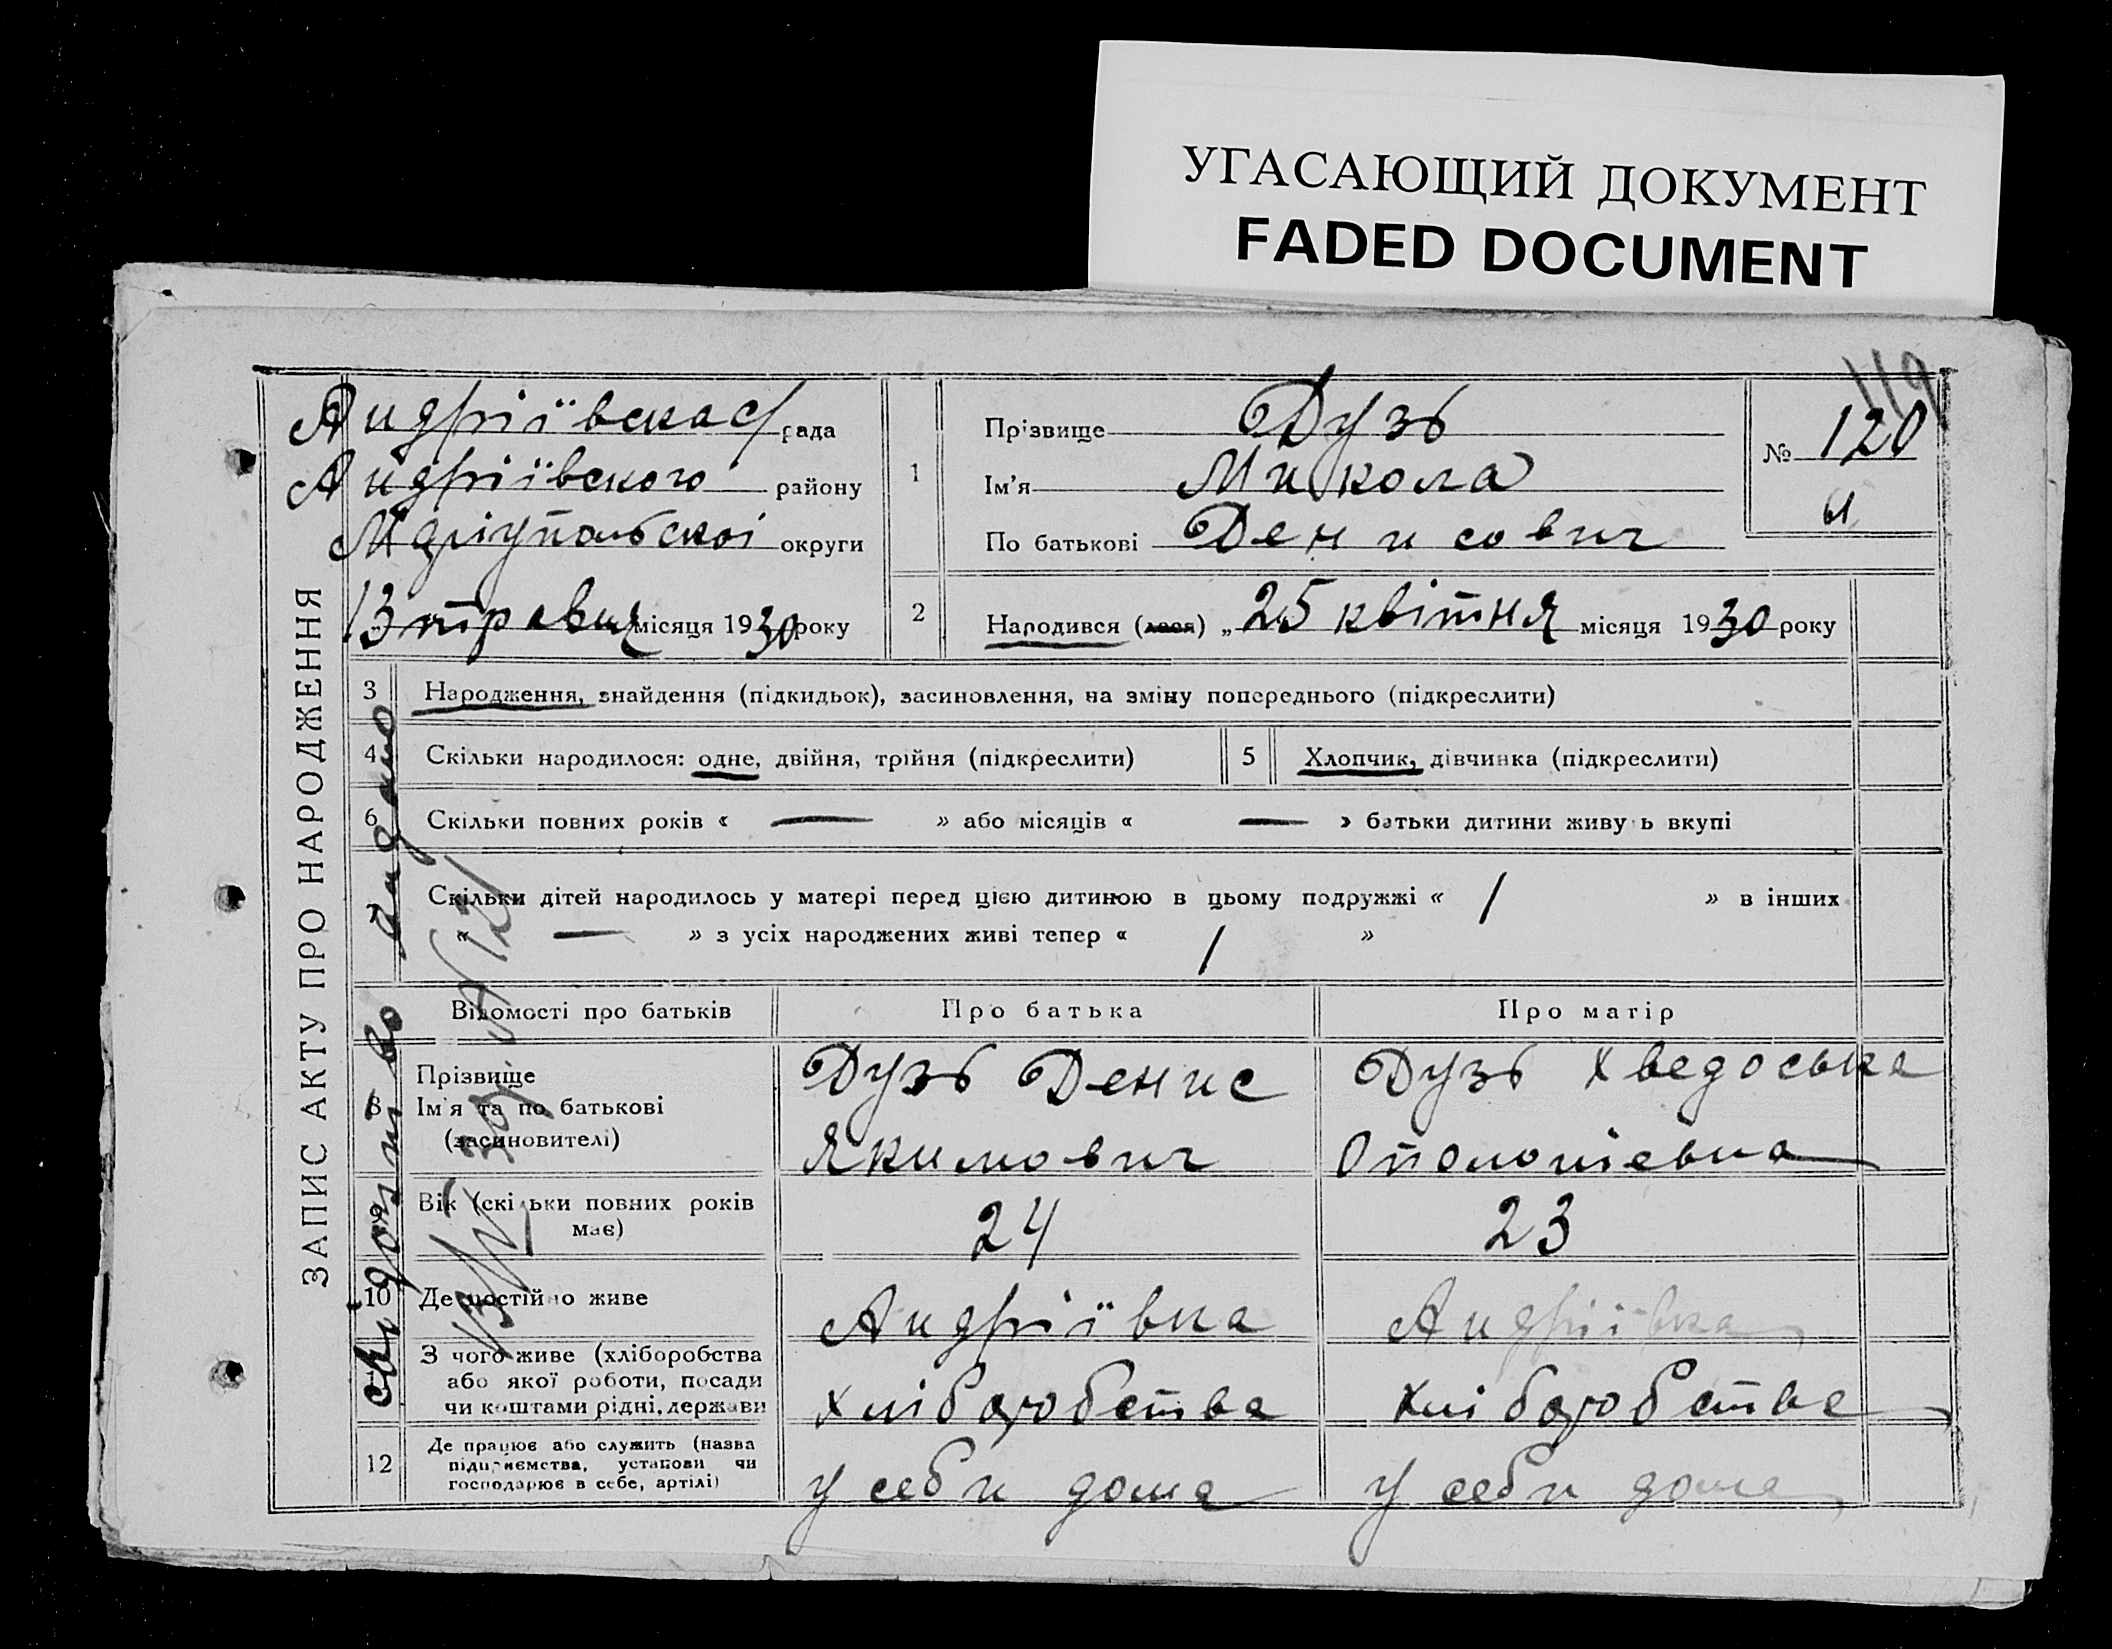 УГАСАЮЩИЙ ДОКУМЕНТ
FADED DOCUMENT
119
ЗАПИС АКТУ ПРО НАРОДЖЕННЯ
Андріївска с/рада
Андріївского району
Маріупольскоі округи
13 травня місяця 1930 року
1
Прізвище Дузь
Ім'я Микола
По батькові Денисович
№ 120
2 Народився (лася) „ 25 квітня місяця 1930 року
3 Народження, знайдення (підкидьок), засиновлення, на зміну попереднього (підкреслити)
4 Скільки народилося: одне, двійня, трійня (підкреслити) 5 Хлопчик, дівчинка (підкреслити)
6 Скільки повних років « — » або місяців « — » батьки дитини живу ь вкупі
Скільки дітей народилось у матері перед цією дитиною в цьому подружжі « 1 » в інших
« — » з усіх народжених живі тепер « 1 »
Відомості про батьків Про батька Про матір
Прізвище Дузь Денис Дузь Хведоська
8 Ім'я та по батькові
(засиновителі) Якимович Ополонієвна
Вік (скільки повних років 24 23
має)
10 Де постійно живе Андріївка Андріївка
З чого живе (хліборобства
або якої роботи, посади
чи коштами рідні, держави Хліборобства Хліборобства
Де працює або служить (назва
12 підприємства, установи чи
господарює в себе, артілі) у себи дома у себи дома
свідоцтво видано